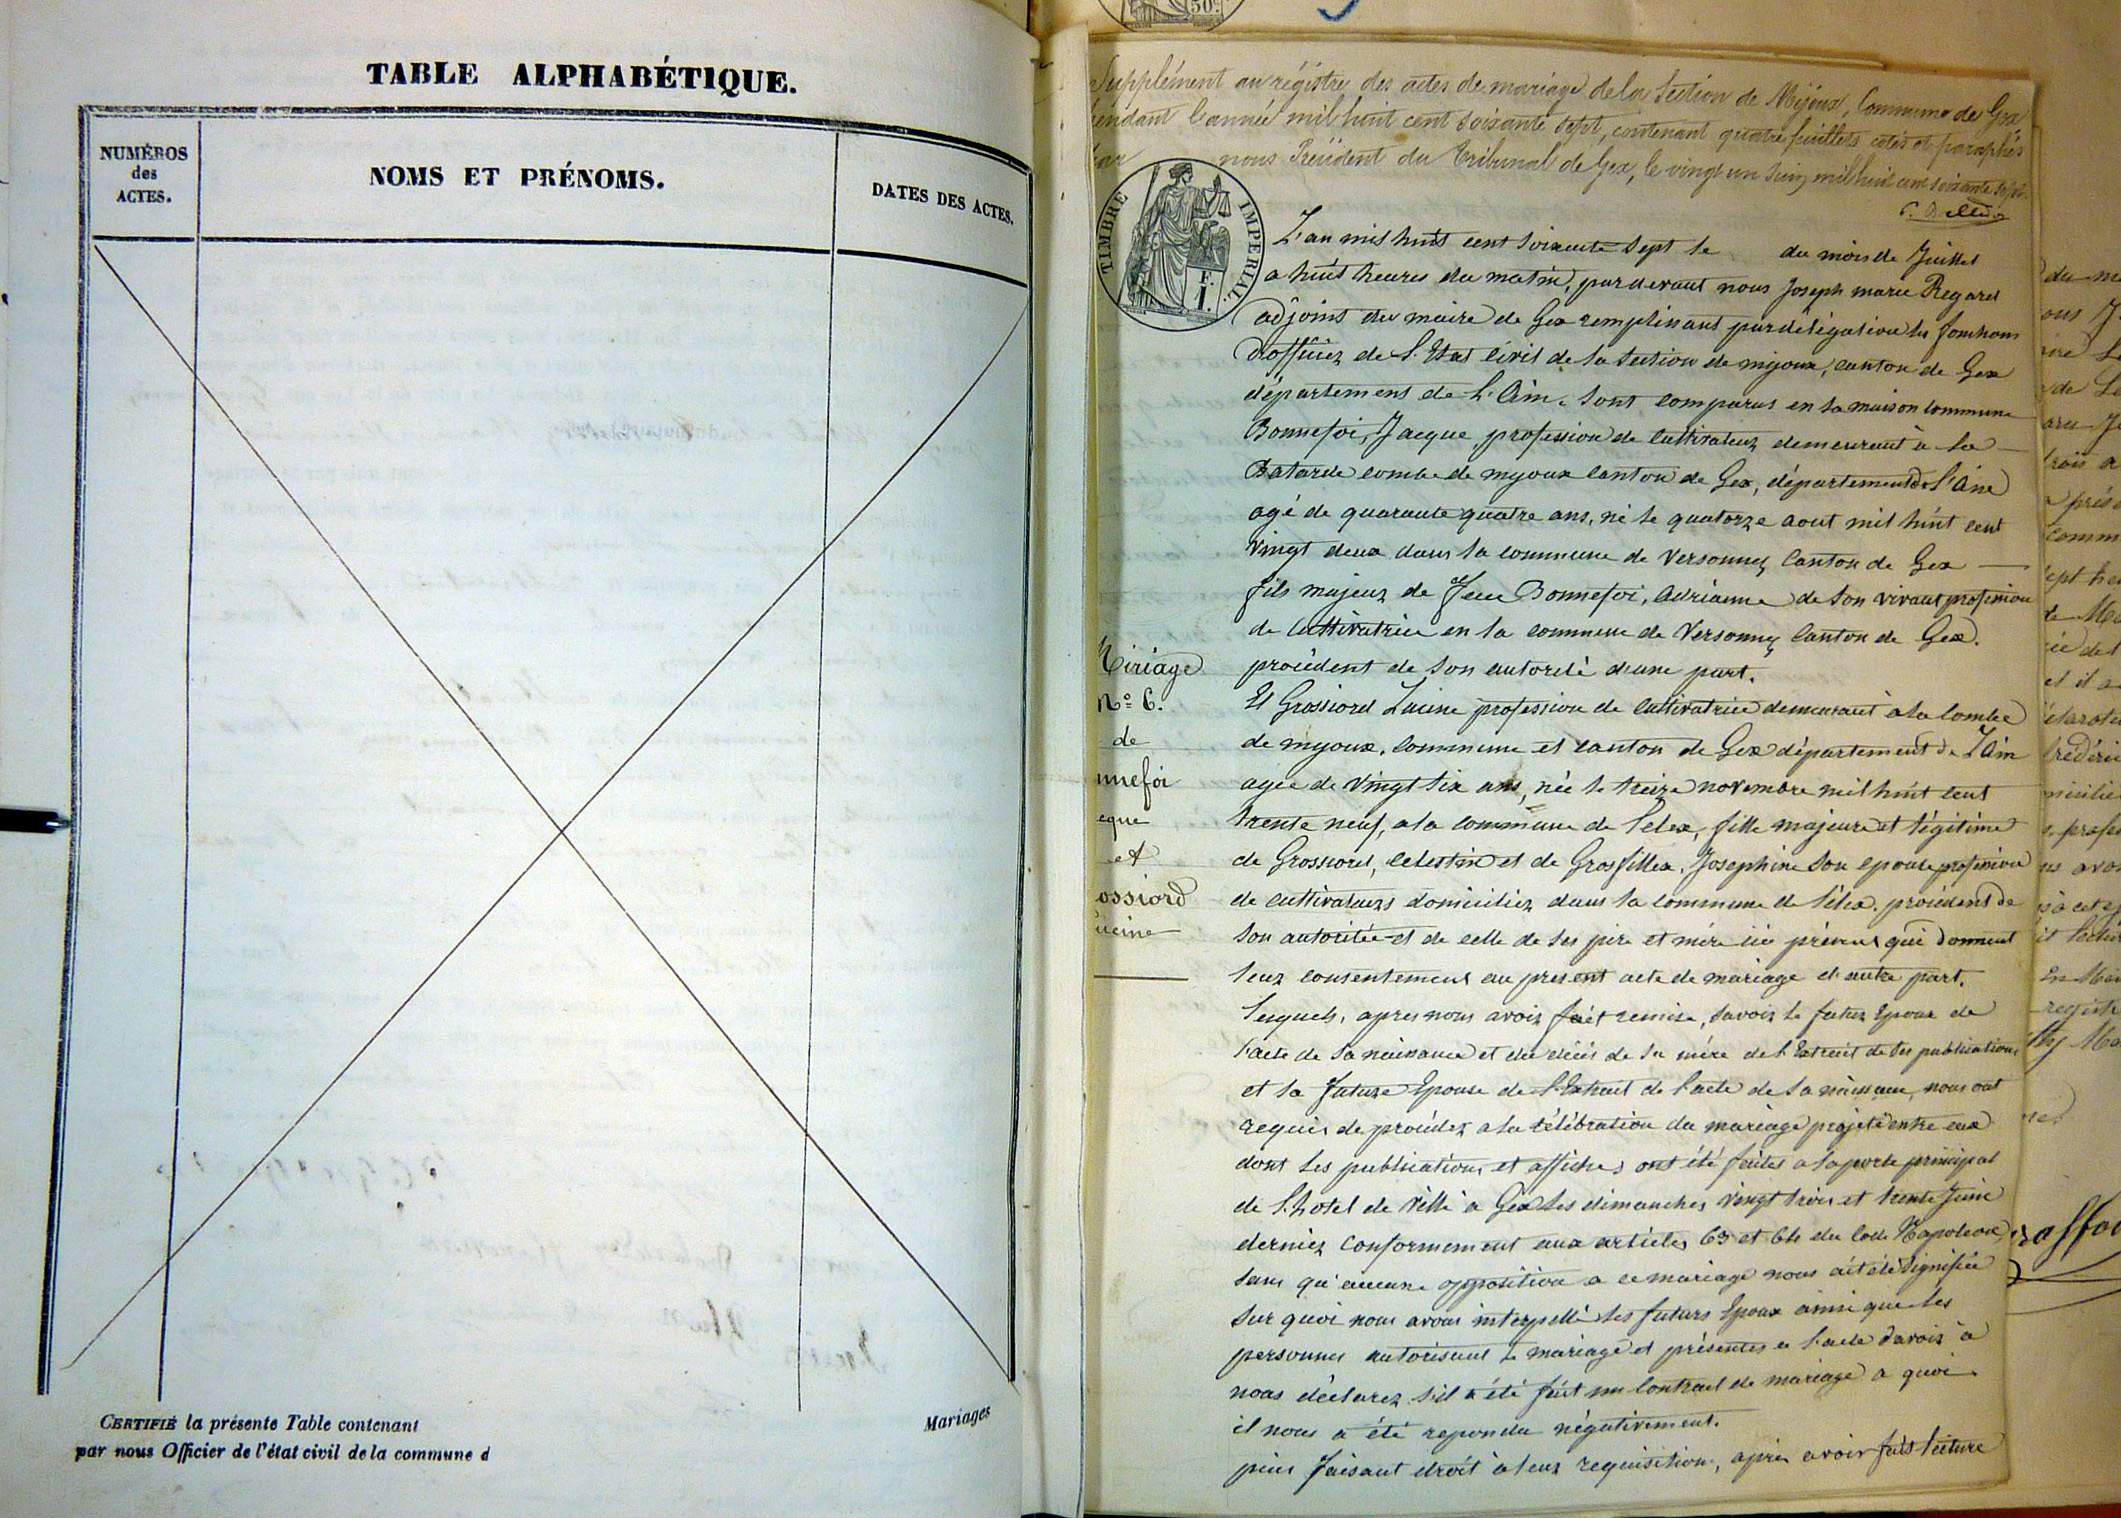 TABLE ALPHABÉTIQUE.
NUMÉROS
des
ACTES.
NOMS ET PRÉNOMS.
DATES DES ACTES.
CERTIFIÉ la présente Table contenant
par nous Officier de l'état civil de la commune d
Mariages
50c
Supplément au régistre des actes de mariage de la Section de Mijoux, Commune de Gex
pendant l'année mil huit cent soixante sept, contenant quatre feuillets cotés et paraphés
par nous Président du Tribunal de Gex, le vingt un Juin mil huit cent soixante sept.
TIMBRE IMPERIAL.
F.
1.
L'an mil huit cent soixante sept le du mois de Juillet
a huit heures du matin, pardevant nous Joseph marie Regard
adjoint du maire de Gex remplissant par délégation les fonctions
d'officiez de l'Etat Civil de la Section de mijoux, canton de Gex
département de L'Ain. Sont comparus en la maison commune
Bonnefoi, Jacque profession de cultivateuz demeurant à la
Batarde combe de mijoux Canton de Gex, département de l'Ain
agé de quarante quatre ans, né le quatorze aout mil huit cent
vingt deux dans la commune de Versonnex Canton de Gex
fils majeuz de Feue Bonnefoi, Adrianne de son vivant profession
de cultivatrice en la commune de Versonnex Canton de Gex.
procédent de son autorité d'une part.
Mariage
No 6.
de
nnefoi
cque
et
ossiord
ucine
Et Grossiord Lucine profession de Cultivatrice demeurant à la Combe
de mijoux, Commune et canton de Gex département de l'Ain
agée de vingt six ans, née le treize novembre mil huit cent
trente neuf, a la commune de Lélex, fille majeure et légitime
de Grossiord, Celestin et de Grosfillex, Josephine son epouse profession
de cultivateurs domiciliez dans la commune de Lélex. procédent de
son autoritée et de celle de ses pére et mére ici présens qui donnent
leuz consentement au present acte de mariage d'autre part.
Lesquels, apres nous avoiz fait remise, savoiz le futur Epoux de
l'acte de sa naissance et du décés de sa mére de l'Extrait de ses publications
et la Future Epouse de l'Extrait de l'acte de sa naissance, nous ont
requis de procédez a la célébration du mariage projeté entre eux
dont les publications et affiches ont été faites a la porte principal
de l'hotel de ville à Gex les dimanches vingt trois et trente Juin
derniez Conformement aux articles 63 et 64 du Code Napoleon,
sans qu'aucune opposition a ce mariage nous ait été signifiée
Sur quoi nous avons interpellé les futurs Epoux ainsi que les
personnes autorisant le mariage et présentes a l'acte d'avoiz à
nous déclarez s'il a été fait un Contrat de mariage a quoi
il nous a été repondu négativement.
puis Faisant droit à leuz requisition, aprés avoir fait lecture